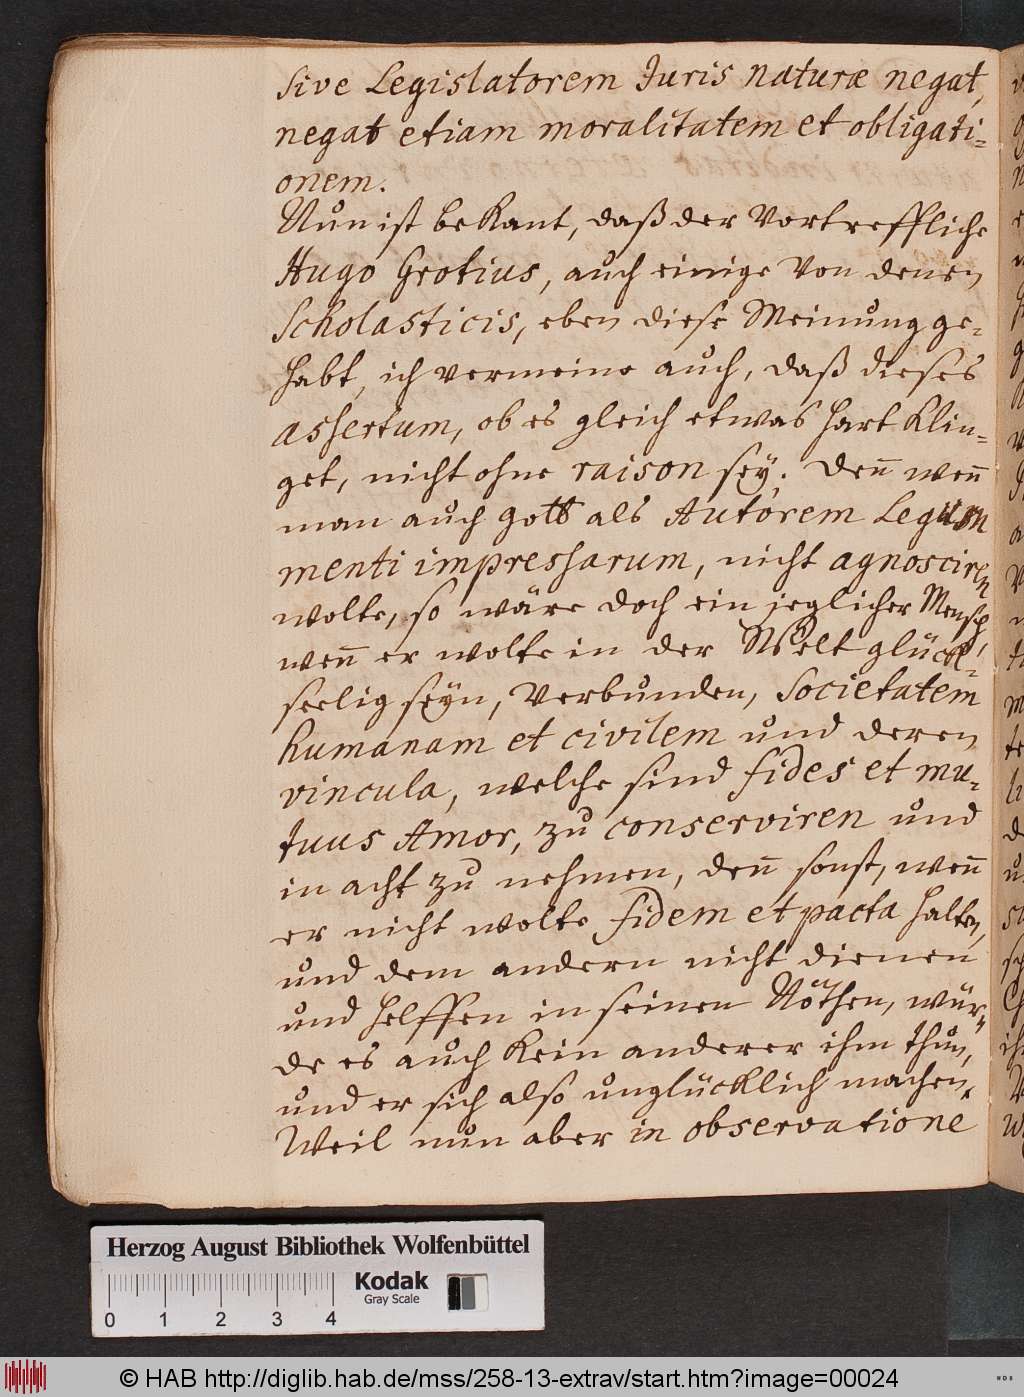 sive Legislatorem Juris naturæ negat,
negat etiam moralitatem et obligati=
onem.
Nun ist bekant, daß der Vortreffliche
Hugo Grotius, auch einige Von denen
Scholasticis, eben diese Meinung ge=
habt, ich vermeine auch, daß dieses
assertum, ob es gleich etwas hart klin=
get, nicht ohne raison sey; den̄ wen̄
man auch gott als Autorem Legum
menti impressarum, nicht agnosciren
wolte, so wäre doch ein jeglicher Mensch,
wen̄ er wolte in der Welt glück=
seelig seyn, Verbunden, Societatem
humanam et civilem und deren
vincula, welche sind fides et mu=
tuus Amor, zu conserviren und
in acht zu nehmen, den̄ sonst, wen̄
er nicht wolte fidem et pacta halten,
und dem andern nicht dienen
und helffen in seinen Nöthen, wür=
de es auch kein anderer ihm thun,
und er sich also unglücklich machen.
Weil nun aber in observatione
Herzog August Bibliothek Wolfenbüttel
Kodak
Gray Scale
0 1 2 3 4
© HAB http://diglib.hab.de/mss/258-13-extrav/start.htm?image=00024